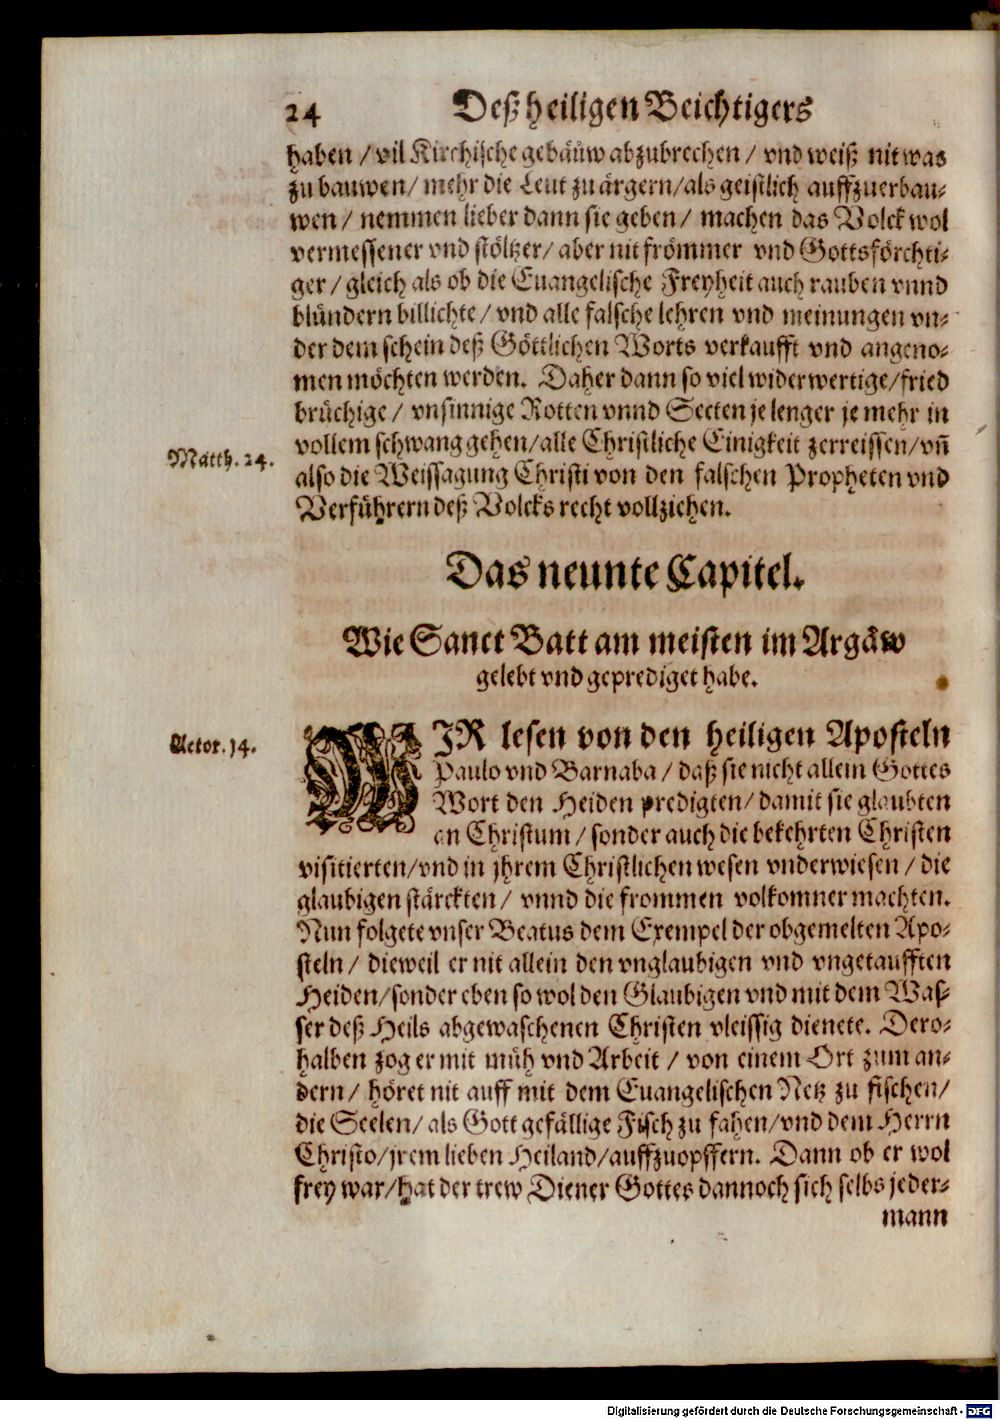 24 Deß heiligen Beichtigers
haben / vil Kirchische gebäuw abzubrechen / vnd weiß nit was
zu bauwen / mehr die Leut zu ärgern / als geistlich auffzuerbau-
wen / nemmen lieber dann sie geben / machen das Volck wol
vermessener vnd stöltzer / aber nit frömmer vnd Gottsförchti-
ger / gleich als ob die Euangelische Freyheit auch rauben vnnd
blündern billichte / vnd alle falsche lehren vnd meinungen vn-
der dem schein deß Göttlichen Worts verkaufft vnd angeno-
men möchten werden. Daher dann so viel widerwertige / fried
brüchige / vnsinnige Rotten vnnd Secten je lenger je mehr in
vollem schwang gehen / alle Christliche Einigkeit zerreissen / vñ
Matth. 24.
also die Weissagung Christi von den falschen Propheten vnd
Verführern deß Volcks recht vollziehen.
Das neunte Capitel.
Wie Sanct Batt am meisten im Argäw
gelebt vnd geprediget habe.
Actor. 14.
WJR lesen von den heiligen Aposteln
Paulo vnd Barnaba / daß sie nicht allein Gottes
Wort den Heiden predigten / damit sie glaubten
an Christum / sonder auch die bekehrten Christen
visitierten / vnd in jhrem Christlichen wesen vnderwiesen / die
glaubigen stärckten / vnnd die frommen volkomner machten.
Nun folgete vnser Beatus dem Exempel der obgemelten Apo-
steln / dieweil er nit allein den vnglaubigen vnd vngetaufften
Heiden / sonder eben so wol den Glaubigen vnd mit dem Was-
ser deß Heils abgewaschenen Christen vleissig dienete. Dero-
halben zog er mit müh vnd Arbeit / von einem Ort zum an-
dern / höret nit auff mit dem Euangelischen Netz zu fischen /
die Seelen / als Gott gefällige Fisch zu fahen / vnd dem Herrn
Christo / jrem lieben Heiland / auffzuopffern. Dann ob er wol
frey war / hat der trew Diener Gottes dannoch sich selbs jeder-
mann
Digitalisierung gefördert durch die Deutsche Forschungsgemeinschaft - DFG